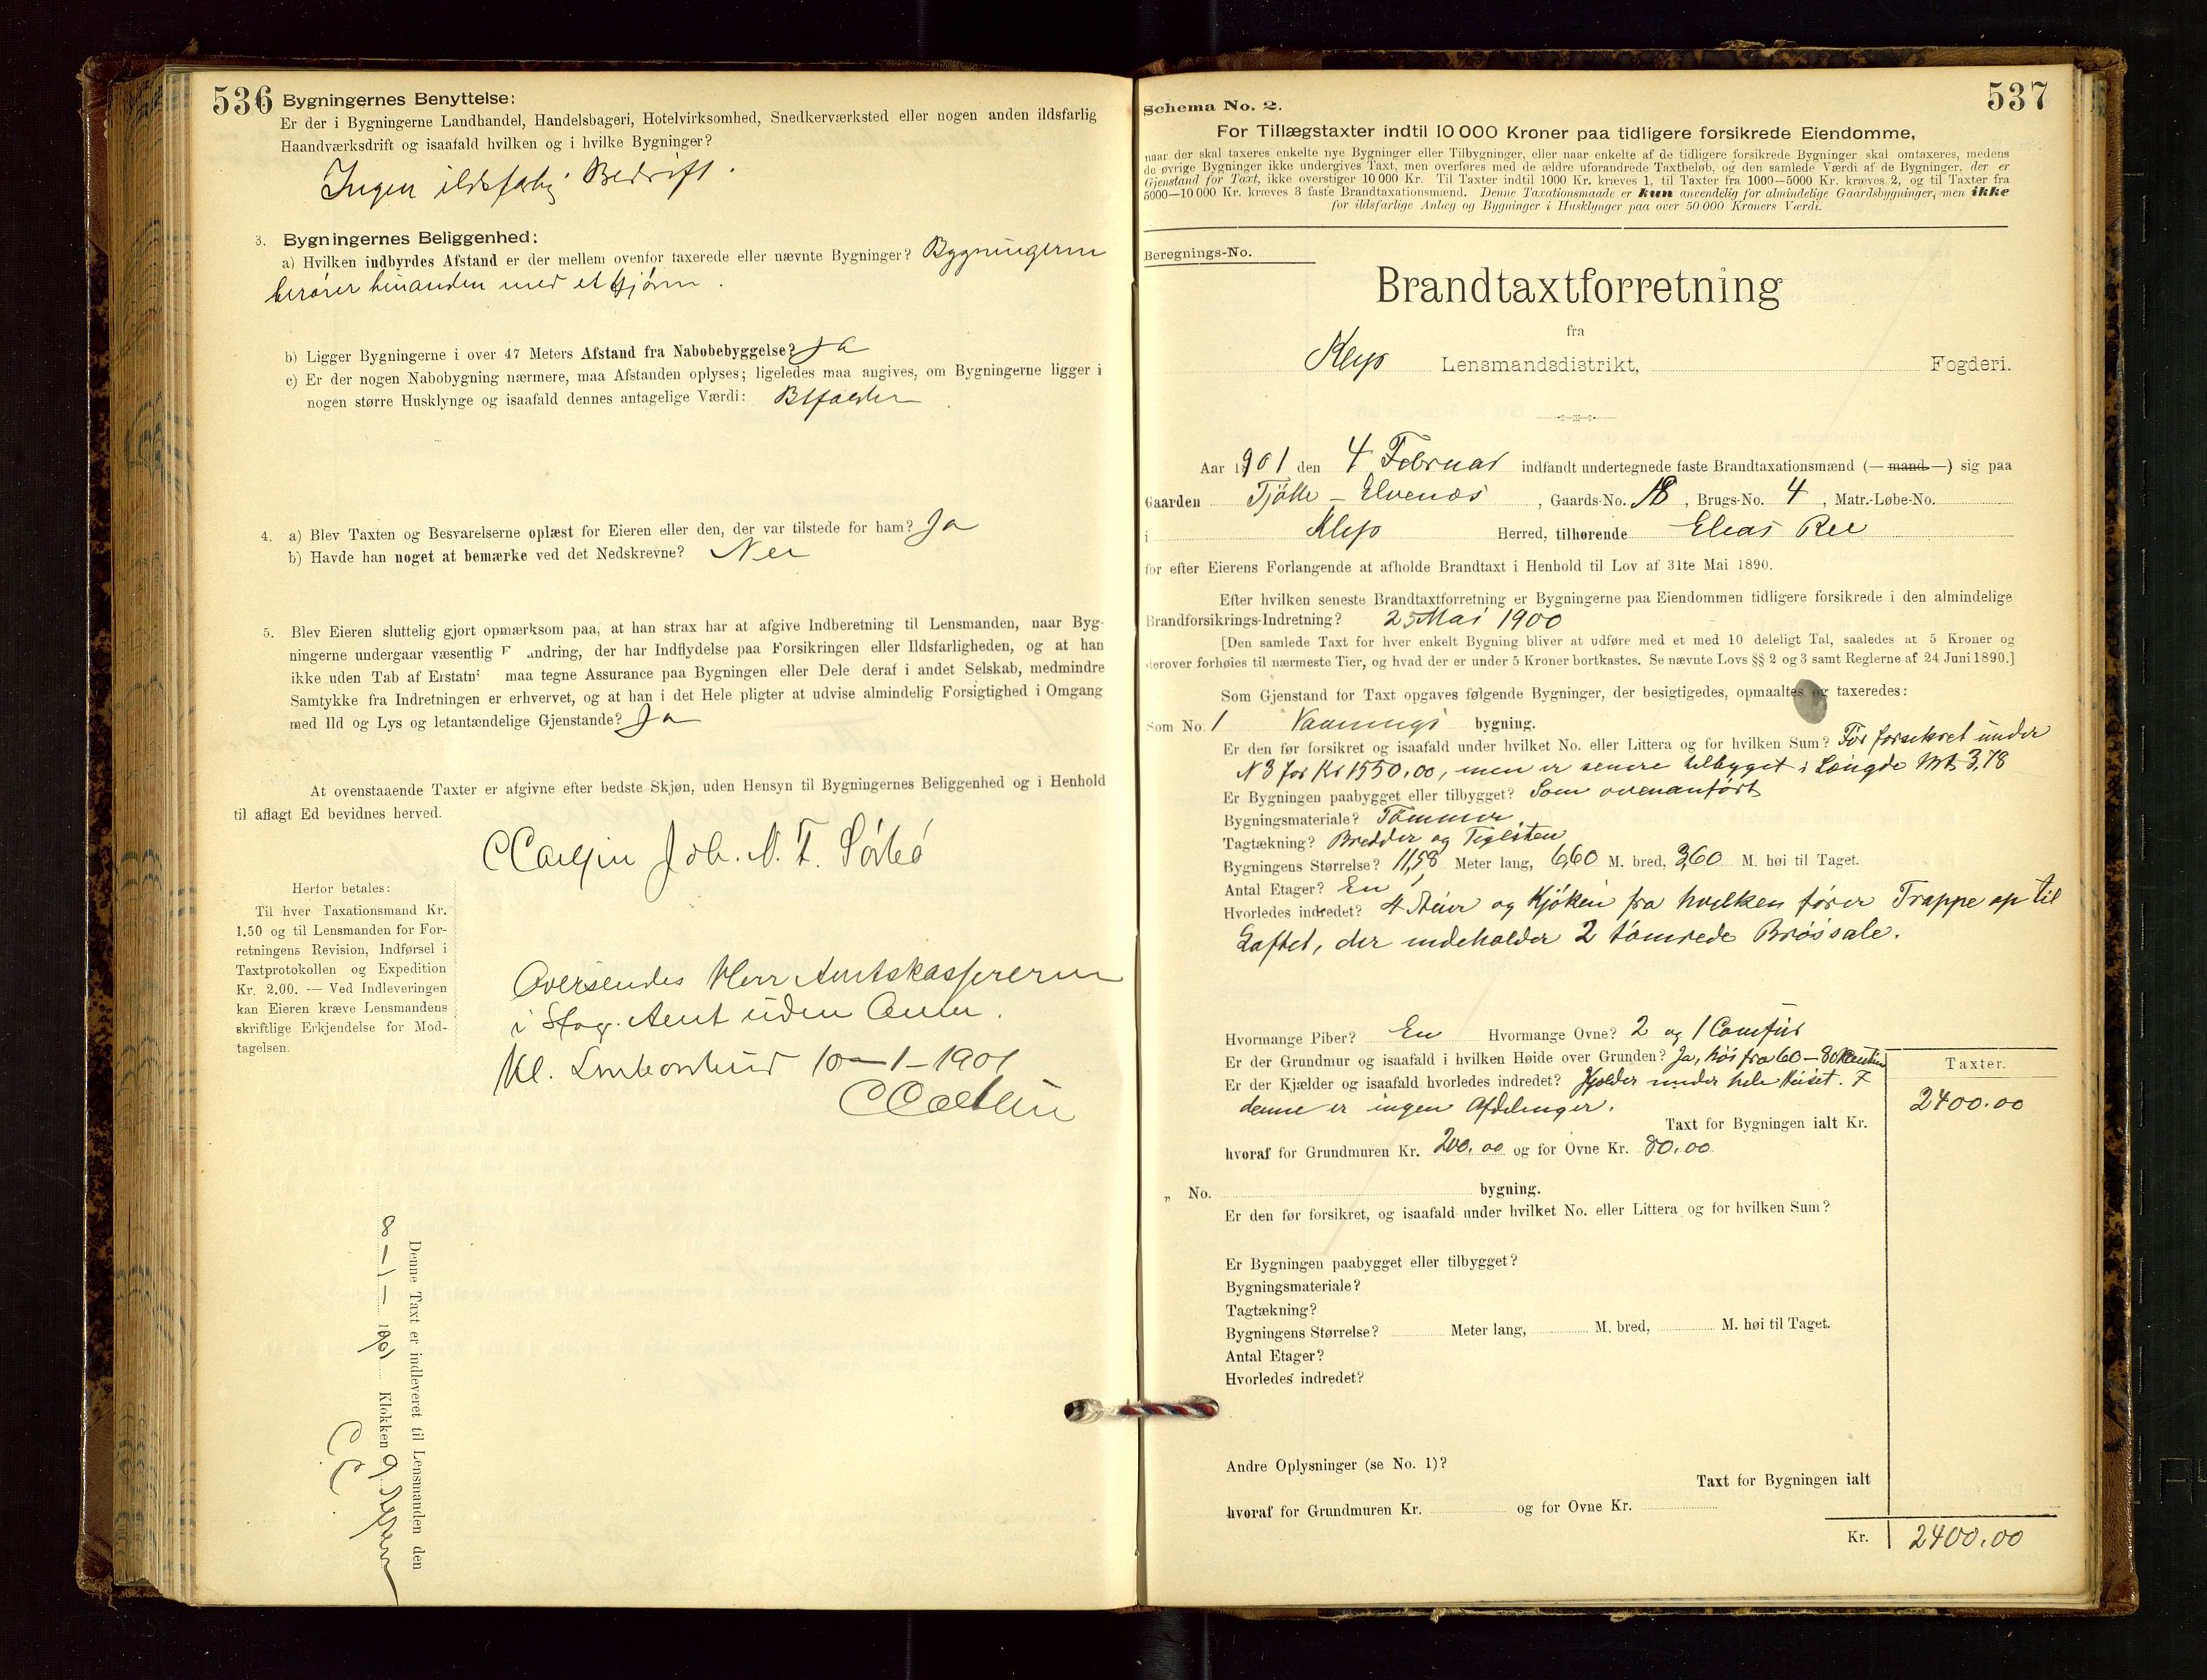 536
Bygningernes Benyttelse:
Er der i Bygningerne Landhandel, Handelsbageri, Hotelvirksomhed, Snedkerværksted eller nogen anden ildsfarlig
Haandværksdrift og isaafald hvilken og i hvilke Bygninger?
Ingen ildsfarlig Bedrift.
3. Bygningernes Beliggenhed:
a) Hvilken indbyrdes Afstand er der mellem ovenfor taxerede eller nævnte Bygninger? Bygningerne
berører hinanden med et Hjørne.
b) Ligger Bygningerne i over 47 Meters Afstand fra Nabobebyggelse? Ja
c) Er der nogen Nabobygning nærmere, maa Afstanden oplyses; ligeledes maa angives, om Bygningerne ligger i
nogen større Husklynge og isaafald dennes antagelige Værdi: Bifalder
4. a) Blev Taxten og Besvarelserne oplæst for Eieren eller den, der var tilstede for ham? Ja
b) Havde han noget at bemærke ved det Nedskrevne? Nei
5. Blev Eieren sluttelig gjort opmærksom paa, at han strax har at afgive Indberetning til Lensmanden, naar Byg-
ningerne undergaar væsentlig F andring, der har Indflydelse paa Forsikringen eller Ildsfarligheden, og at han
ikke uden Tab af Erstatn maa tegne Assurance paa Bygningen eller Dele deraf i andet Selskab, medmindre
Samtykke fra Indretningen er erhvervet, og at han i det Hele pligter at udvise almindelig Forsigtighed i Omgang
med Ild og Lys og letantændelige Gjenstande? Ja
At ovenstaaende Taxter er afgivne efter bedste Skjøn, uden Hensyn til Bygningernes Beliggenhed og i Henhold
til aflagt Ed bevidnes herved.
Joh. N. T. Sørbø
Herfor betales:
Til hver Taxationsmand Kr.
1.50 og til Lensmanden for For-
retningens Revision, Indførsel i
Taxtprotokollen og Expedition
Kr. 2.00. — Ved Indleveringen
kan Eieren kræve Lensmandens
skriftlige Erkjendelse for Mod-
tagelsen.
Oversendes Herr Amtskassereren
i Stav. Amt uden Anm.
Kl. 10-1-1901
Denne Taxt er indleveret til Lensmanden den
8 - 1 - 1901 Klokken 9
C C
537
Schema No. 2.
For Tillægstaxter indtil 10 000 Kroner paa tidligere forsikrede Eiendomme,
naar der skal taxeres enkelte nye Bygninger eller Tilbygninger, eller naar enkelte af de tidligere forsikrede Bygninger skal omtaxeres, medens
de øvrige Bygninger ikke undergives Taxt, men overføres med de ældre uforandrede Taxtbeløb, og den samlede Værdi af de Bygninger, der er
Gjenstand for Taxt, ikke overstiger 10 000 Kr. Til Taxter indtil 1000 Kr. kræves 1, til Taxter fra 1000—5000 Kr. kræves 2, og til Taxter fra
5000—10 000 Kr. kræves 3 faste Brandtaxationsmænd. Denne Taxationsmaade er kun anvendelig for almindelige Gaardsbygninger, men ikke
for ildsfarlige Anlæg og Bygninger i Husklynger paa over 50 000 Kroners Værdi.
Beregnings-No.
Brandtaxtforretning
fra
Klep Lensmandsdistrikt, Fogderi.
Aar 1901 den 4 Februar indfandt undertegnede faste Brandtaxationsmænd (— mand —) sig paa
Gaarden Tjøtte - Elvenæs, Gaards-No. 18, Brugs-No. 4, Matr.-Løbe-No.
i Klep Herred, tilhørende Elias Ree
for efter Eierens Forlangende at afholde Brandtaxt i Henhold til Lov af 31te Mai 1890.
Efter hvilken seneste Brandtaxtforretning er Bygningerne paa Eiendommen tidligere forsikrede i den almindelige
Brandforsikrings-Indretning? 25 Mai 1900
[Den samlede Taxt for hver enkelt Bygning bliver at udføre med et med 10 deleligt Tal, saaledes at 5 Kroner og
derover forhøies til nærmeste Tier, og hvad der er under 5 Kroner bortkastes. Se nævnte Lovs §§ 2 og 3 samt Reglerne af 24 Juni 1890.]
Som Gjenstand for Taxt opgaves følgende Bygninger, der besigtigedes, opmaaltes og taxeredes:
Som No. 1 Vaanings bygning.
Er den før forsikret og isaafald under hvilket No. eller Littera og for hvilken Sum? Før forsikret under
N 3 for Kr 1550.00, men er senere tilbygget i Længde Mt. 3,78
Er Bygningen paabygget eller tilbygget? Som ovenanført
Bygningsmateriale? Tømmer
Tagtækning? Bredder og Teglsten
Bygningens Størrelse? 11,58 Meter lang, 6,60 M. bred, 3,60 M. høi til Taget.
Antal Etager? En
Hvorledes indredet? 4 Stuer og Kjøken fra hvilken fører Trappe op til
Loftet, der indeholder 2 tømrede Brøssale.
Hvormange Piber? En Hvormange Ovne? 2 og 1 Comfur
Er der Grundmur og isaafald i hvilken Høide over Grunden? Ja, høi fra 60 - 80
Er der Kjælder og isaafald hvorledes indredet? Kjelder under hele Huset. I
denne er ingen Afdelinger.
Taxter.
2400.00
Taxt for Bygningen ialt Kr.
hvoraf for Grundmuren Kr. 200.00 og for Ovne Kr. 80.00
„ No. bygning.
Er den før forsikret, og isaafald under hvilket No. eller Littera og for hvilken Sum?
Er Bygningen paabygget eller tilbygget?
Bygningsmateriale?
Tagtækning?
Bygningens Størrelse? Meter lang, M. bred, M. høi til Taget.
Antal Etager?
Hvorledes indredet?
Andre Oplysninger (se No. 1)?
Taxt for Bygningen ialt
hvoraf for Grundmuren Kr. og for Ovne Kr.
Kr. 2400.00